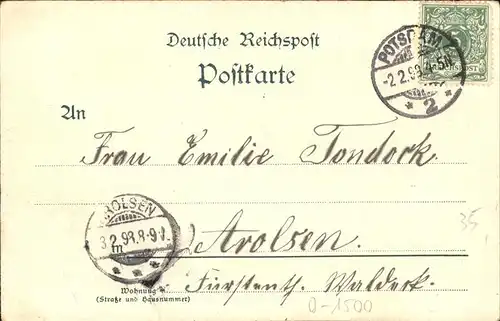 Deutsche Reichspost
Postkarte
POTSDAM
-2.2.98.4-5N
* 2 *
5
An
Frau Emilie Tondock.
AROLSEN
3.2.98.8-9V.
in
Arolsen.
35
Fürstenth. Waldeck.
Wohnung
(Straße und Hausnummer)
D-1500